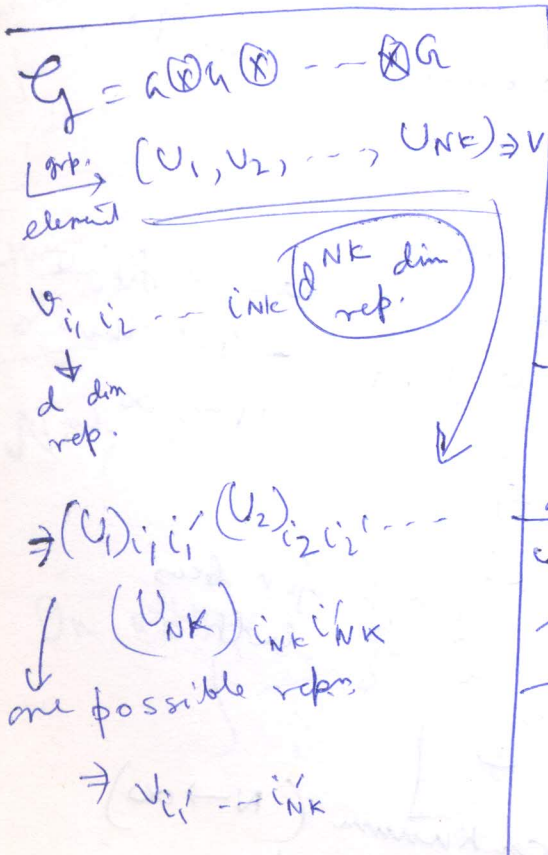 G = G ⊗ G ⊗ --- ⊗ G
grp. element → (U₁, U₂, ---, U_NK) ⇒ V
v_{i₁ i₂ --- i_NK}
d^{NK} dim rep.
↓
d dim rep.
⇒ (U₁)_{i₁ i₁'} (U₂)_{i₂ i₂'} ----
(U_NK)_{i_NK i'_NK}
↓
one possible repn.
⇒ v_{i₁' --- i'_NK}